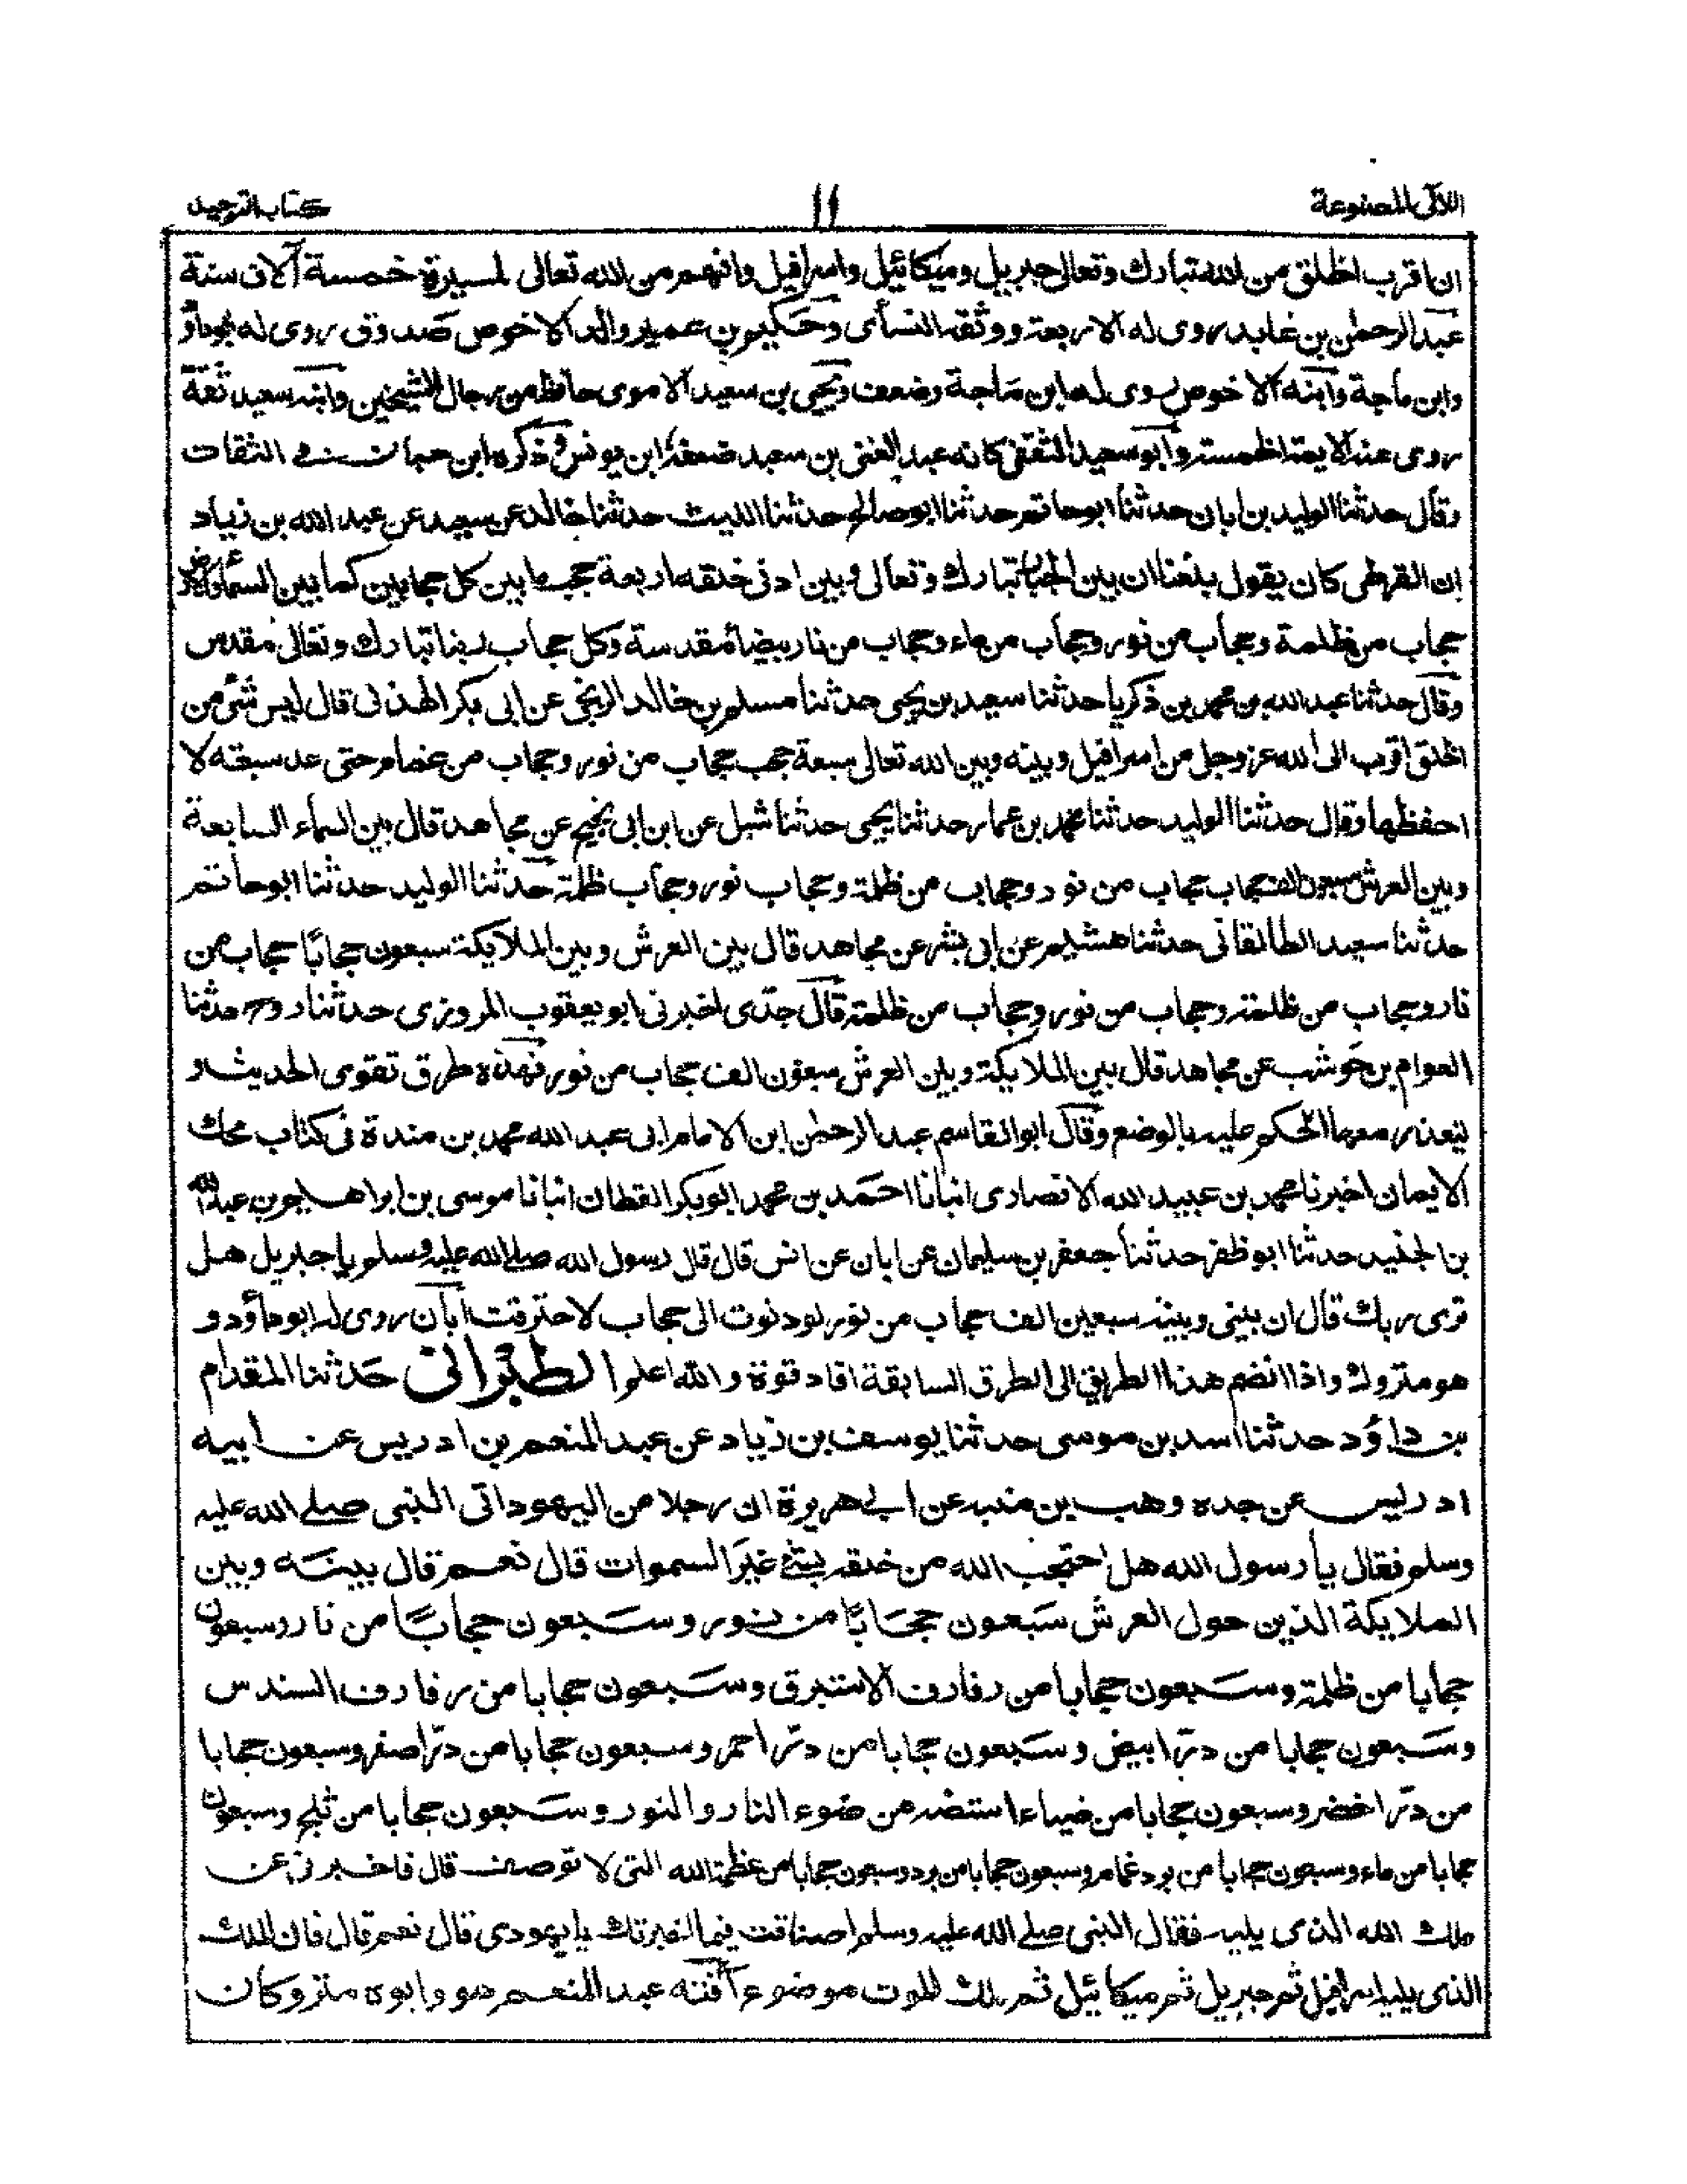 اللآلى المصنوعة
١١
كتاب التوحيد
ان اقرب الخلق من الله تبارك وتعالى جبريل وميكائيل واسرافيل وانهم من الله تعالى لمسيرة خمسة آلاف سنة
عبد الرحمن بن عايد روى له الاربعة ووثقه النسأى وحكيم بن عمير والد الاحوص صدوق روى له ابوداؤد
وابن ماجة وابنه الاحوص روى له ابن ماجة وضعف ويحيى بن سعيد الاموى حافظ من رجال الشيخين وابنه سعيد ثقة
روى عنه الايمة الخمسة وابو سعيد الثقفى كانه عبد الغنى بن سعيد ضعفه ابن يونس وذكره ابن حبان فے الثقات
وقال حدثنا الوليد بن ابان حدثنا ابو حاتم حدثنا ابو صالح حدثنا الليث حدثنا خالد عن سعيد عن عبد الله بن زياد
ان القرظى كان يقول بلغنا ان بين الجبار تبارك وتعالى وبين ادنى خلقه اربعة حجب ما بين كل حجابين كما بين السماء والارض
حجاب من ظلمة وحجاب من نور وحجاب من ماء وحجاب من نار بيضاء مقدسة وكل حجاب لربنا تبارك وتعالى مقدس
وقال حدثنا عبد الله بن محمد بن زكريا حدثنا سعيد بن يحيى حدثنا مسلم بن خالد الزنجى عن ابى بكر الهذلى قال ليس شئ من
الخلق اقرب الى الله عز وجل من اسرافيل وبينه وبين الله تعالى سبعة حجب حجاب من نور وحجاب من غمام حتى عد سبقه لا
احفظها وقال حدثنا الوليد حدثنا محمد بن عمار حدثنا يحيى حدثنا شبل عن ابن ابى نجيح عن مجاهد قال بين السماء السابعة
وبين العرش سبعون الف حجاب حجاب من نور وحجاب من ظلمة وحجاب نور وحجاب ظلمة حدثنا الوليد حدثنا ابو حاتم
حدثنا سعيد الطالقانى حدثنا هشيم عن ابى بشر عن مجاهد قال بين العرش وبين الملايكة سبعون حجابًا حجاب من
نار وحجاب من ظلمة وحجاب من نور وحجاب من ظلمة قال جدّى اخبرنى ابو يعقوب المروزى حدثنا روح حدثنا
العوام بن حوشب عن مجاهد قال بين الملايكة وبين العرش سبعون الف حجاب من نور فهذه طرق تقوى الحديث و
ليتعذر معها الحكم عليه بالوضع وقال ابو القاسم عبد الرحمن ابن الامام ابى عبد الله محمد بن مندة فى كتاب محك
الايمان اخبرنا محمد بن عبيد الله الانصارى انبانا احمد بن محمد ابو بكر القطان انبانا موسى بن ابراهيم بن عبد الله
بن الجنيد حدثنا ابو ظفر حدثنا جعفر بن سليمان عن ابان عن انس قال قال رسول الله صلے الله عليه وسلم يا جبريل هل
ترى ربك قال ان بينى وبينه سبعين الف حجاب من نور لو دنوت الى حجاب لاحترقت ابان روى له ابو داؤد و
هو متروك واذا انضم هذا الطريق الى الطرق السابقة افاد قوة والله اعلم الطبرانى حدثنا المقدام
بن داؤد حدثنا اسد بن موسى حدثنا يوسف بن زياد عن عبد المنعم بن ادريس عن ابيه
ادريس عن جده وهب بن منبه عن ابے هريرة ان رجلا من اليهود اتى النبى صلے الله عليه
وسلم فقال يا رسول الله هل احتجب الله من خلقه بشئ غير السموات قال نعم قال بينه وبين
الملايكة الذين حول العرش سبعون حجابًا من نور وسبعون حجابًا من نار وسبعون
حجابا من ظلمة وسبعون حجابا من رفارف الاستبرق وسبعون حجابا من رفارف السندس
وسبعون حجابا من درّ ابيض وسبعون حجابا من درّ احمر وسبعون حجابا من درّ اصفر وسبعون حجابا
من درّ اخضر وسبعون حجابا من ضياء استضه من ضوء النار والنور وسبعون حجابا من ثلج وسبعون
حجابا من ماء وسبعون حجابا من برد غمام وسبعون حجابا من برد وسبعون حجابا من عظمة الله التى لا توصف قال فاخبرنى عن
ملك الله الذى يليه فقال النبى صلے الله عليه وسلم اصدقت فيما اخبرتك يا يهودى قال نعم قال فان الملك
الذى يليه اسرافيل ثم جبريل ثم ميكائيل ثم ملك الموت موضوع آفته عبد المنعم هو وابوه متروكان